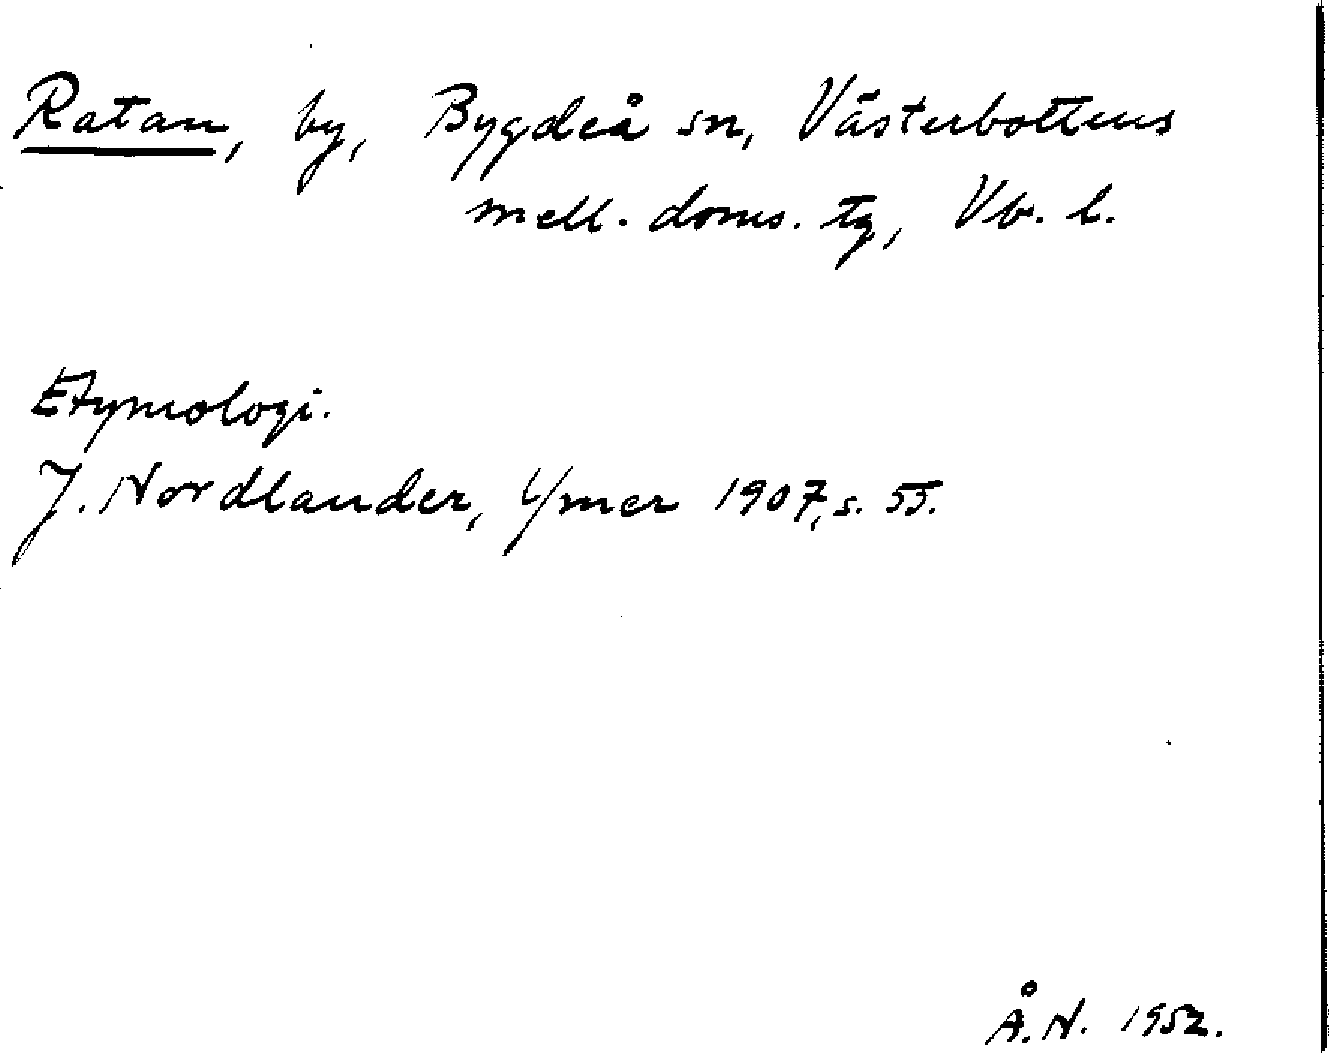 Ratan, by, Bygdeå sn, Västerbottens
mell. doms. tg, Vb. l.
Etymologi.
J. Nordlander, Ymer 1907, s. 55.
Å. N. 1952.